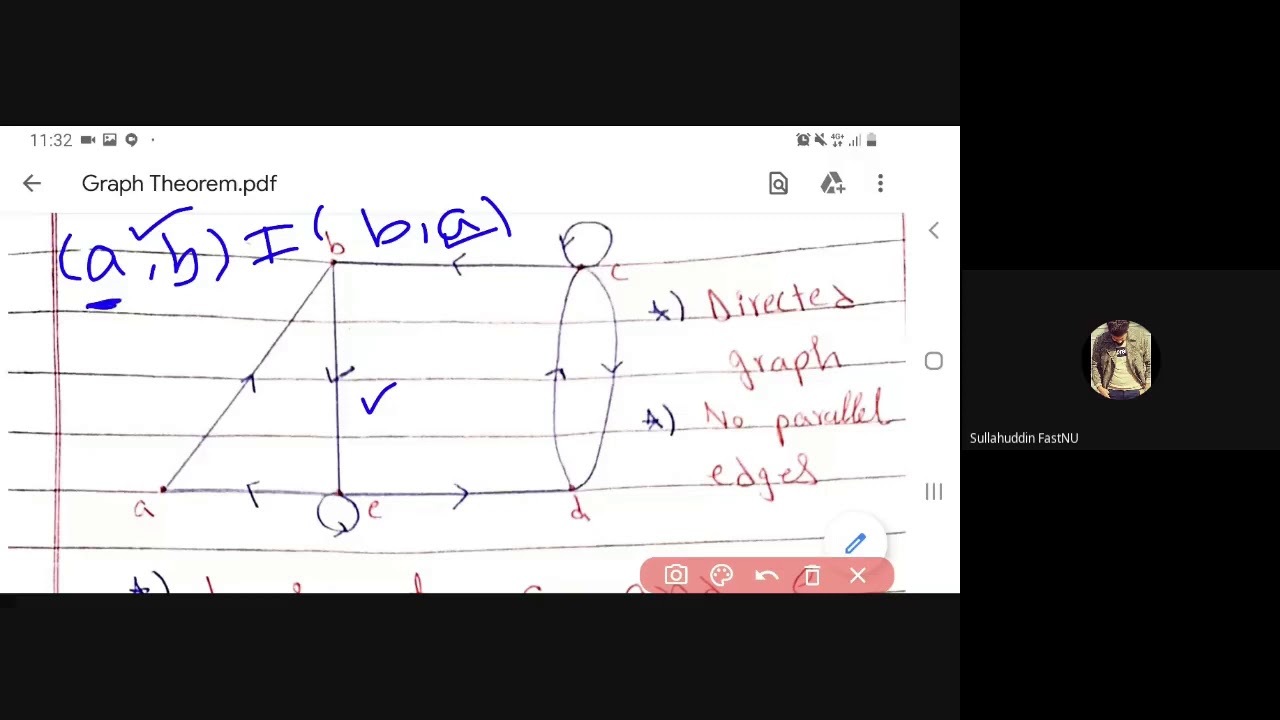 11:32
4G+
Graph Theorem.pdf
(a, b) I (b, a)
b
c
*) Directed
graph
*) No parallel
edges
a
e
d
Sullahuddin FastNU